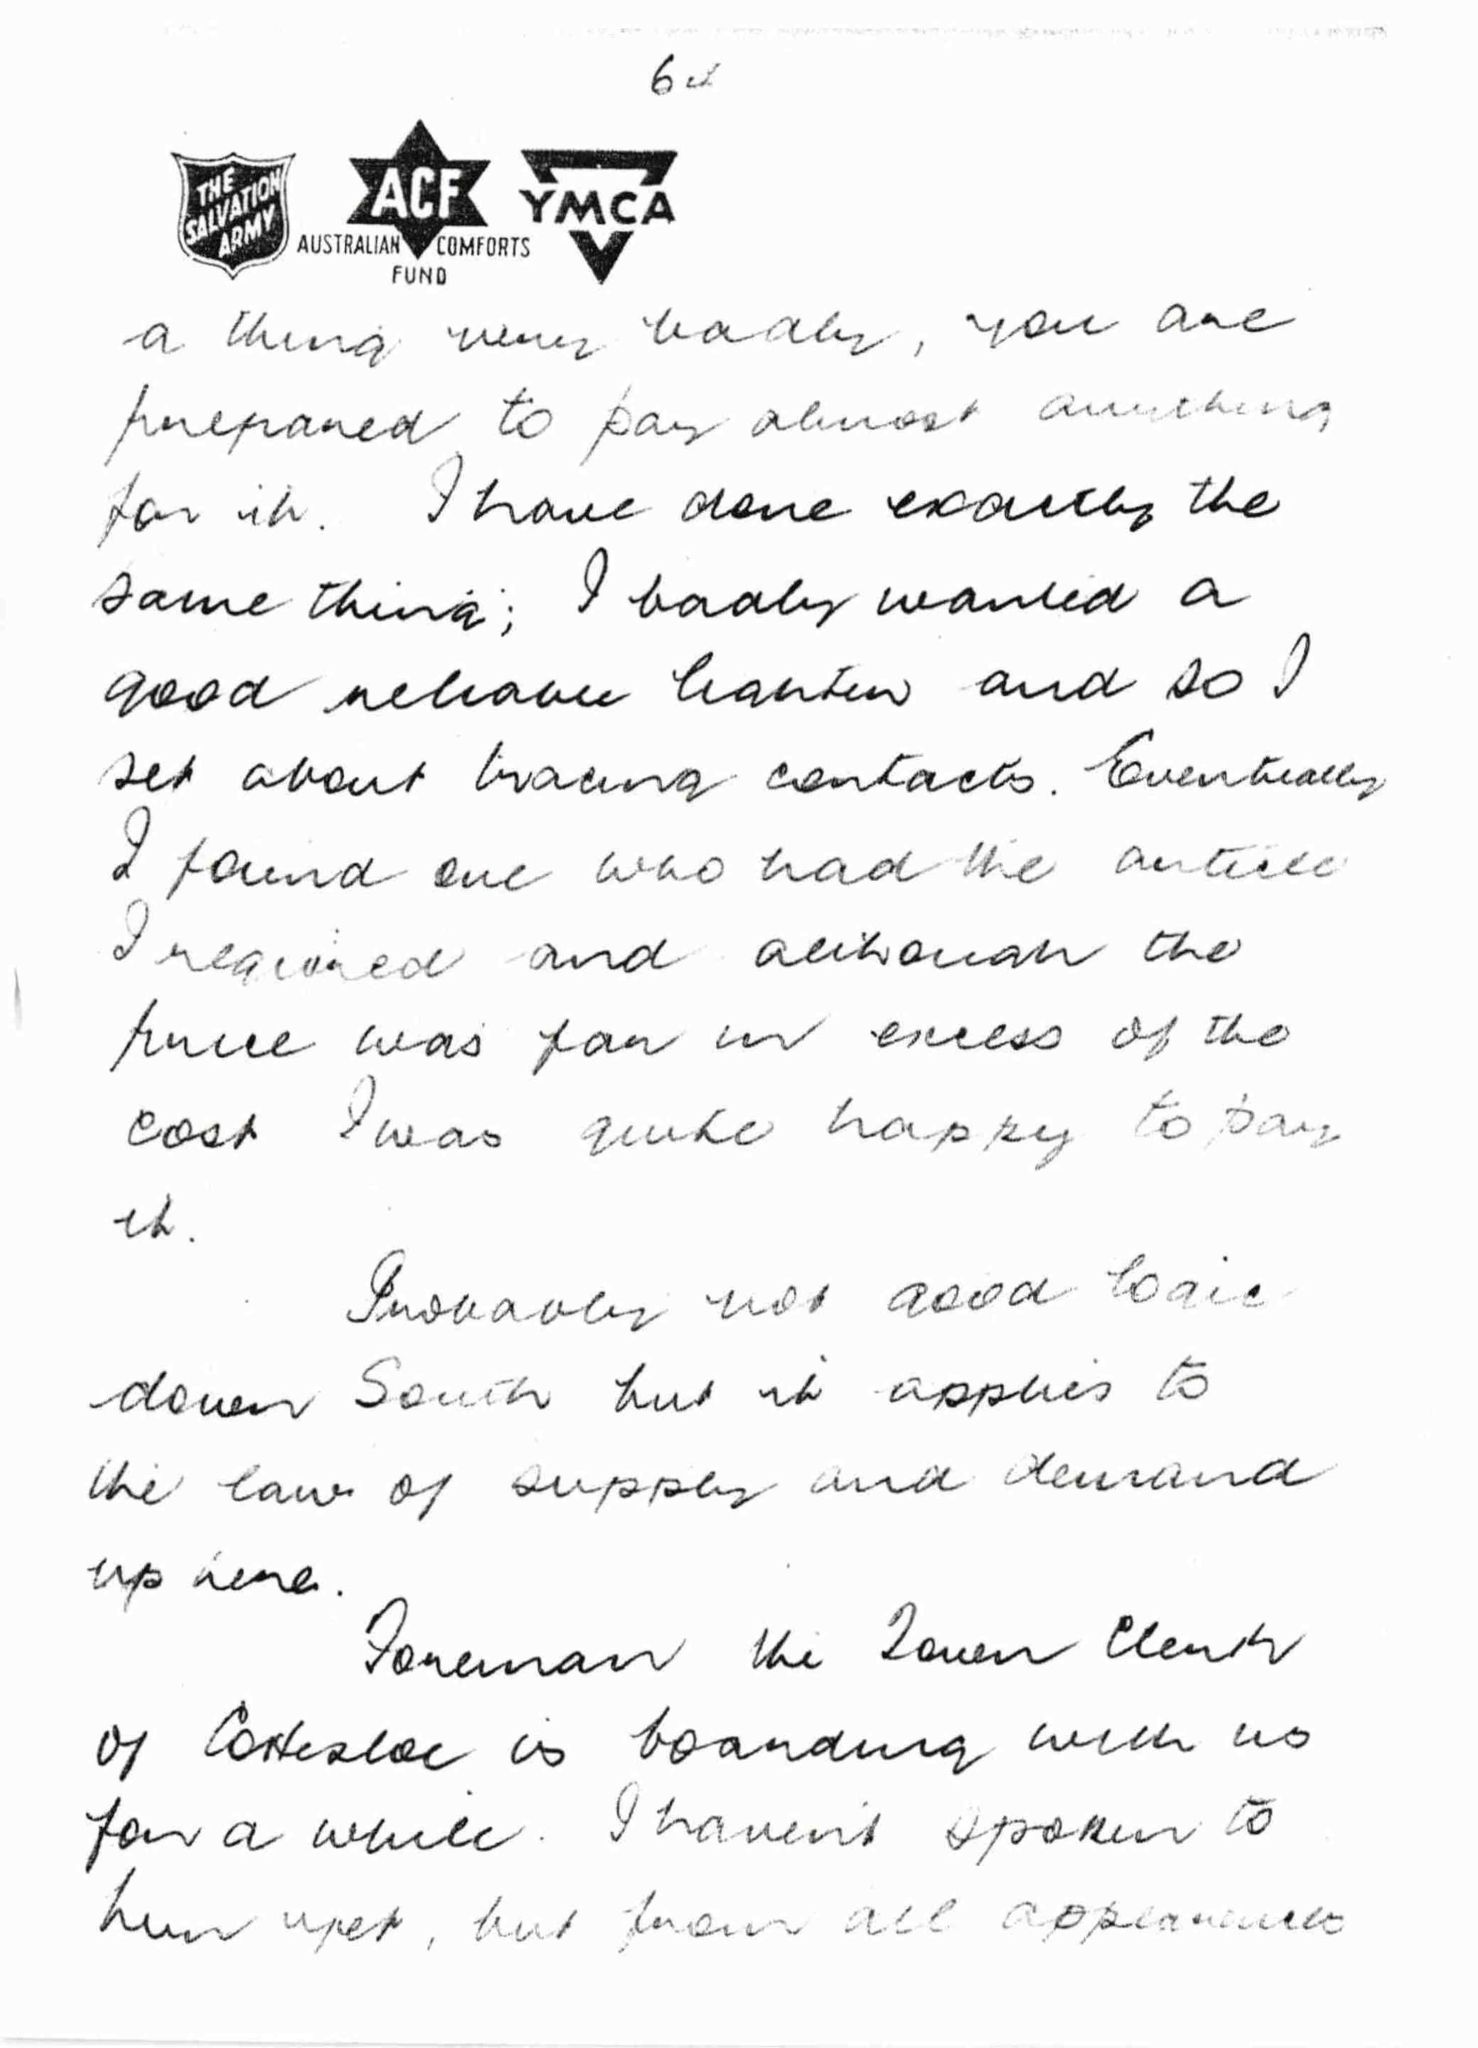 6
THE
SALVATION
ARMY
ACF
AUSTRALIAN COMFORTS
FUND
YMCA
a thing very badly, you are
prepared to pay almost anything
for it. I have done exactly the
same thing; I badly wanted a
good reliable lighter and so I
set about tracing contacts. Eventually
I found one who had the article
I required and although the
price was far in excess of the
cost I was quite happy to pay
it.
Probably not good logic
down South but it applies to
the law of supply and demand
up here.
Foreman the Town Clerk
of Cottesloe is boarding with us
for a while. I haven't spoken to
him yet, but from all appearances